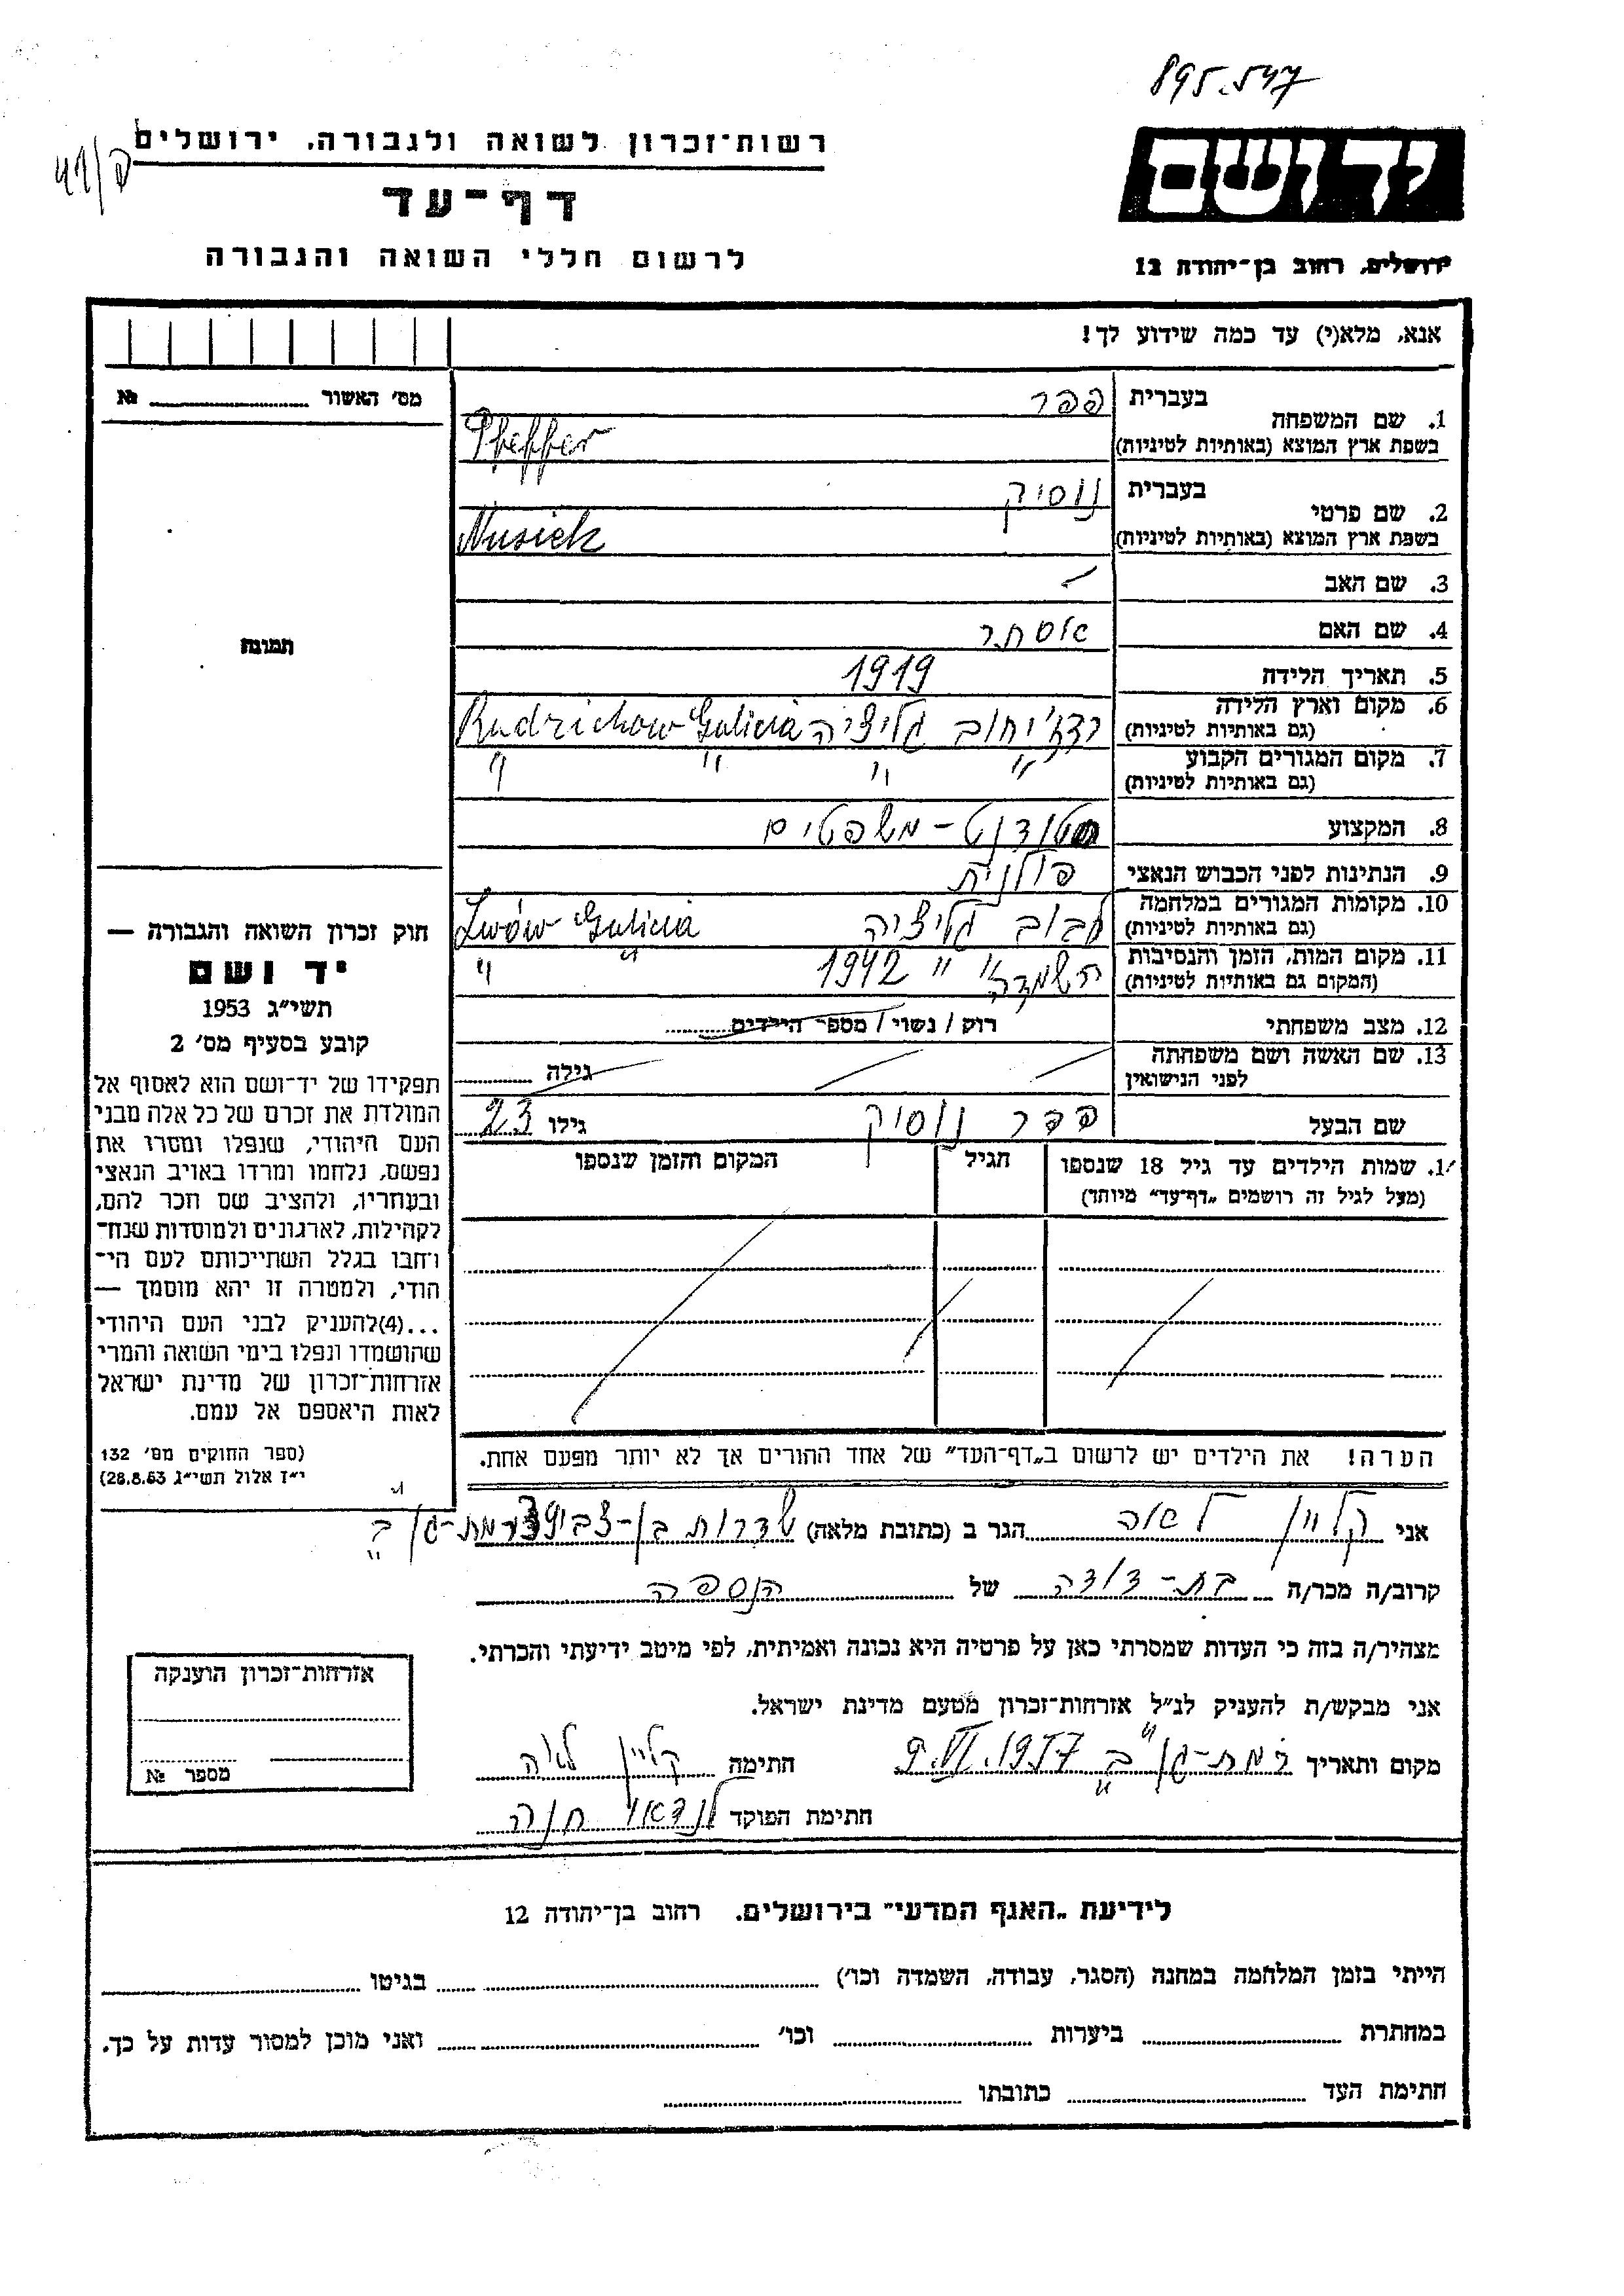 895.547
רשות־זכרון לשואה ולגבורה, ירושלים
דף־עד
לרשום חללי השואה והגבורה
יד ושם
ירושלים, רחוב בן־יהודה 12
אנא, מלא(י) עד כמה שידוע לך!
מס׳ האשור №
1. שם המשפחה בעברית פפר
בשפת ארץ המוצא (באותיות לטיניות) Pfeffer
2. שם פרטי בעברית נוסיק
בשפת ארץ המוצא (באותיות לטיניות) Nusiek
3. שם האב –
4. שם האם אסתר
5. תאריך הלידה 1919
6. מקום וארץ הלידה (גם באותיות לטיניות) רדז'יחוב גליציה Radzichow Galicia
7. מקום המגורים הקבוע (גם באותיות לטיניות) " " " "
8. המקצוע סטודנט - משפטים
9. הנתינות לפני הכבוש הנאצי פולנית
10. מקומות המגורים במלחמה (גם באותיות לטיניות) לבוב גליציה Lwów Galicia
11. מקום המות, הזמן והנסיבות (המקום גם באותיות לטיניות) השמדה " " 1942 " "
12. מצב משפחתי רוק / נשוי / מספר הילדים
13. שם האשה ושם משפחתה לפני הנישואין גילה
שם הבעל פפר נוסיק גילו 23
שמות הילדים עד גיל 18 שנספו
(מעל לגיל זה רושמים „דף־עד״ מיוחד)
הגיל
המקום והזמן שנספו
הערה! את הילדים יש לרשום ב„דף־העד״ של אחד ההורים אך לא יותר מפעם אחת.
תמונה
חוק זכרון השואה והגבורה —
יד ושם
תשי״ג 1953
קובע בסעיף מס׳ 2
תפקידו של יד־ושם הוא לאסוף אל
המולדת את זכרם של כל אלה מבני
העם היהודי, שנפלו ומסרו את
נפשם, נלחמו ומרדו באויב הנאצי
ובעוזריו, ולהציב שם וזכר להם,
לקהילות, לארגונים ולמוסדות שנח־
רבו בגלל השתייכותם לעם הי־
הודי, ולמטרה זו יהא מוסמך —
...(4)להעניק לבני העם היהודי
שהושמדו ונפלו בימי השואה והמרי
אזרחות־זכרון של מדינת ישראל
לאות היאספם אל עמם.
(ספר החוקים מס׳ 132
י״ז אלול תשי״ג 28.8.53)
אני קליין לאה הגר ב (כתובת מלאה) שדרות בן-צבי רמת-גן ב'
קרוב/ה מכר/ה בת-דודה של הנספה
מצהיר/ה בזה כי העדות שמסרתי כאן על פרטיה היא נכונה ואמיתית, לפי מיטב ידיעתי והכרתי.
אני מבקש/ת להעניק לנ״ל אזרחות־זכרון מטעם מדינת ישראל.
מקום ותאריך רמת-גן "ב" 9.VI.1957 חתימה קליין לאה
חתימת הפוקד לנדאו חנה
אזרחות־זכרון הוענקה
מספר №
לידיעת „האגף המדעי״ בירושלים. רחוב בן־יהודה 12
הייתי בזמן המלחמה במחנה (הסגר, עבודה, השמדה וכו׳) בגיטו
במחתרת ביערות וכו׳ ואני מוכן למסור עדות על כך.
חתימת העד כתובתו